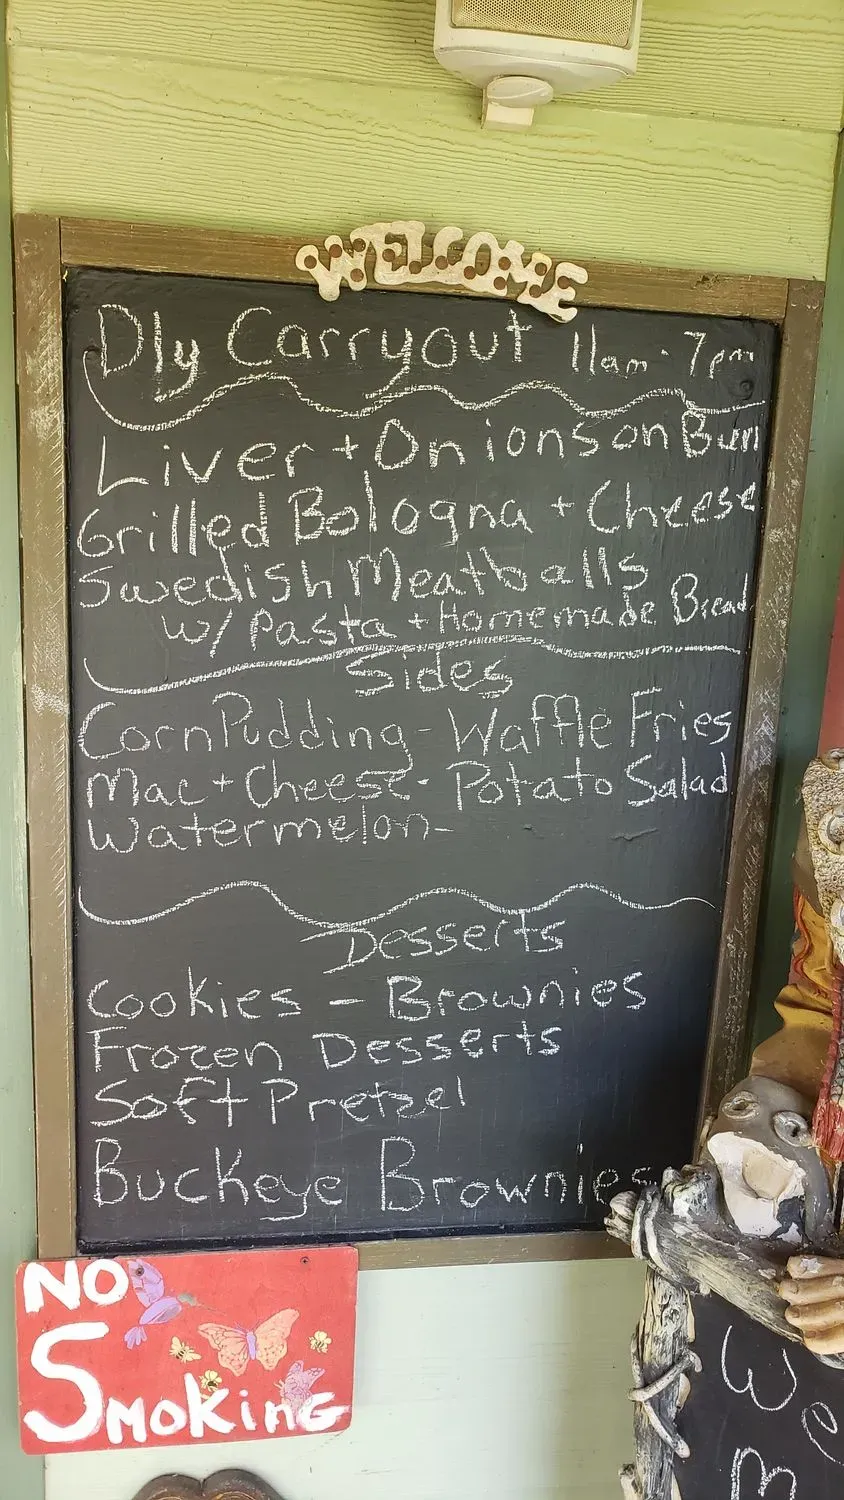 WELCOME
Dly Carryout 11am - 7pm
Liver + Onions on Bun
Grilled Bologna + Cheese
Swedish Meatballs
w/ Pasta + Homemade Bread
Sides
Corn Pudding - Waffle Fries
Mac + Cheese - Potato Salad
Watermelon -
Desserts
Cookies - Brownies
Frozen Desserts
Soft Pretzel
Buckeye Brownies
NO
SMOKING
We
M